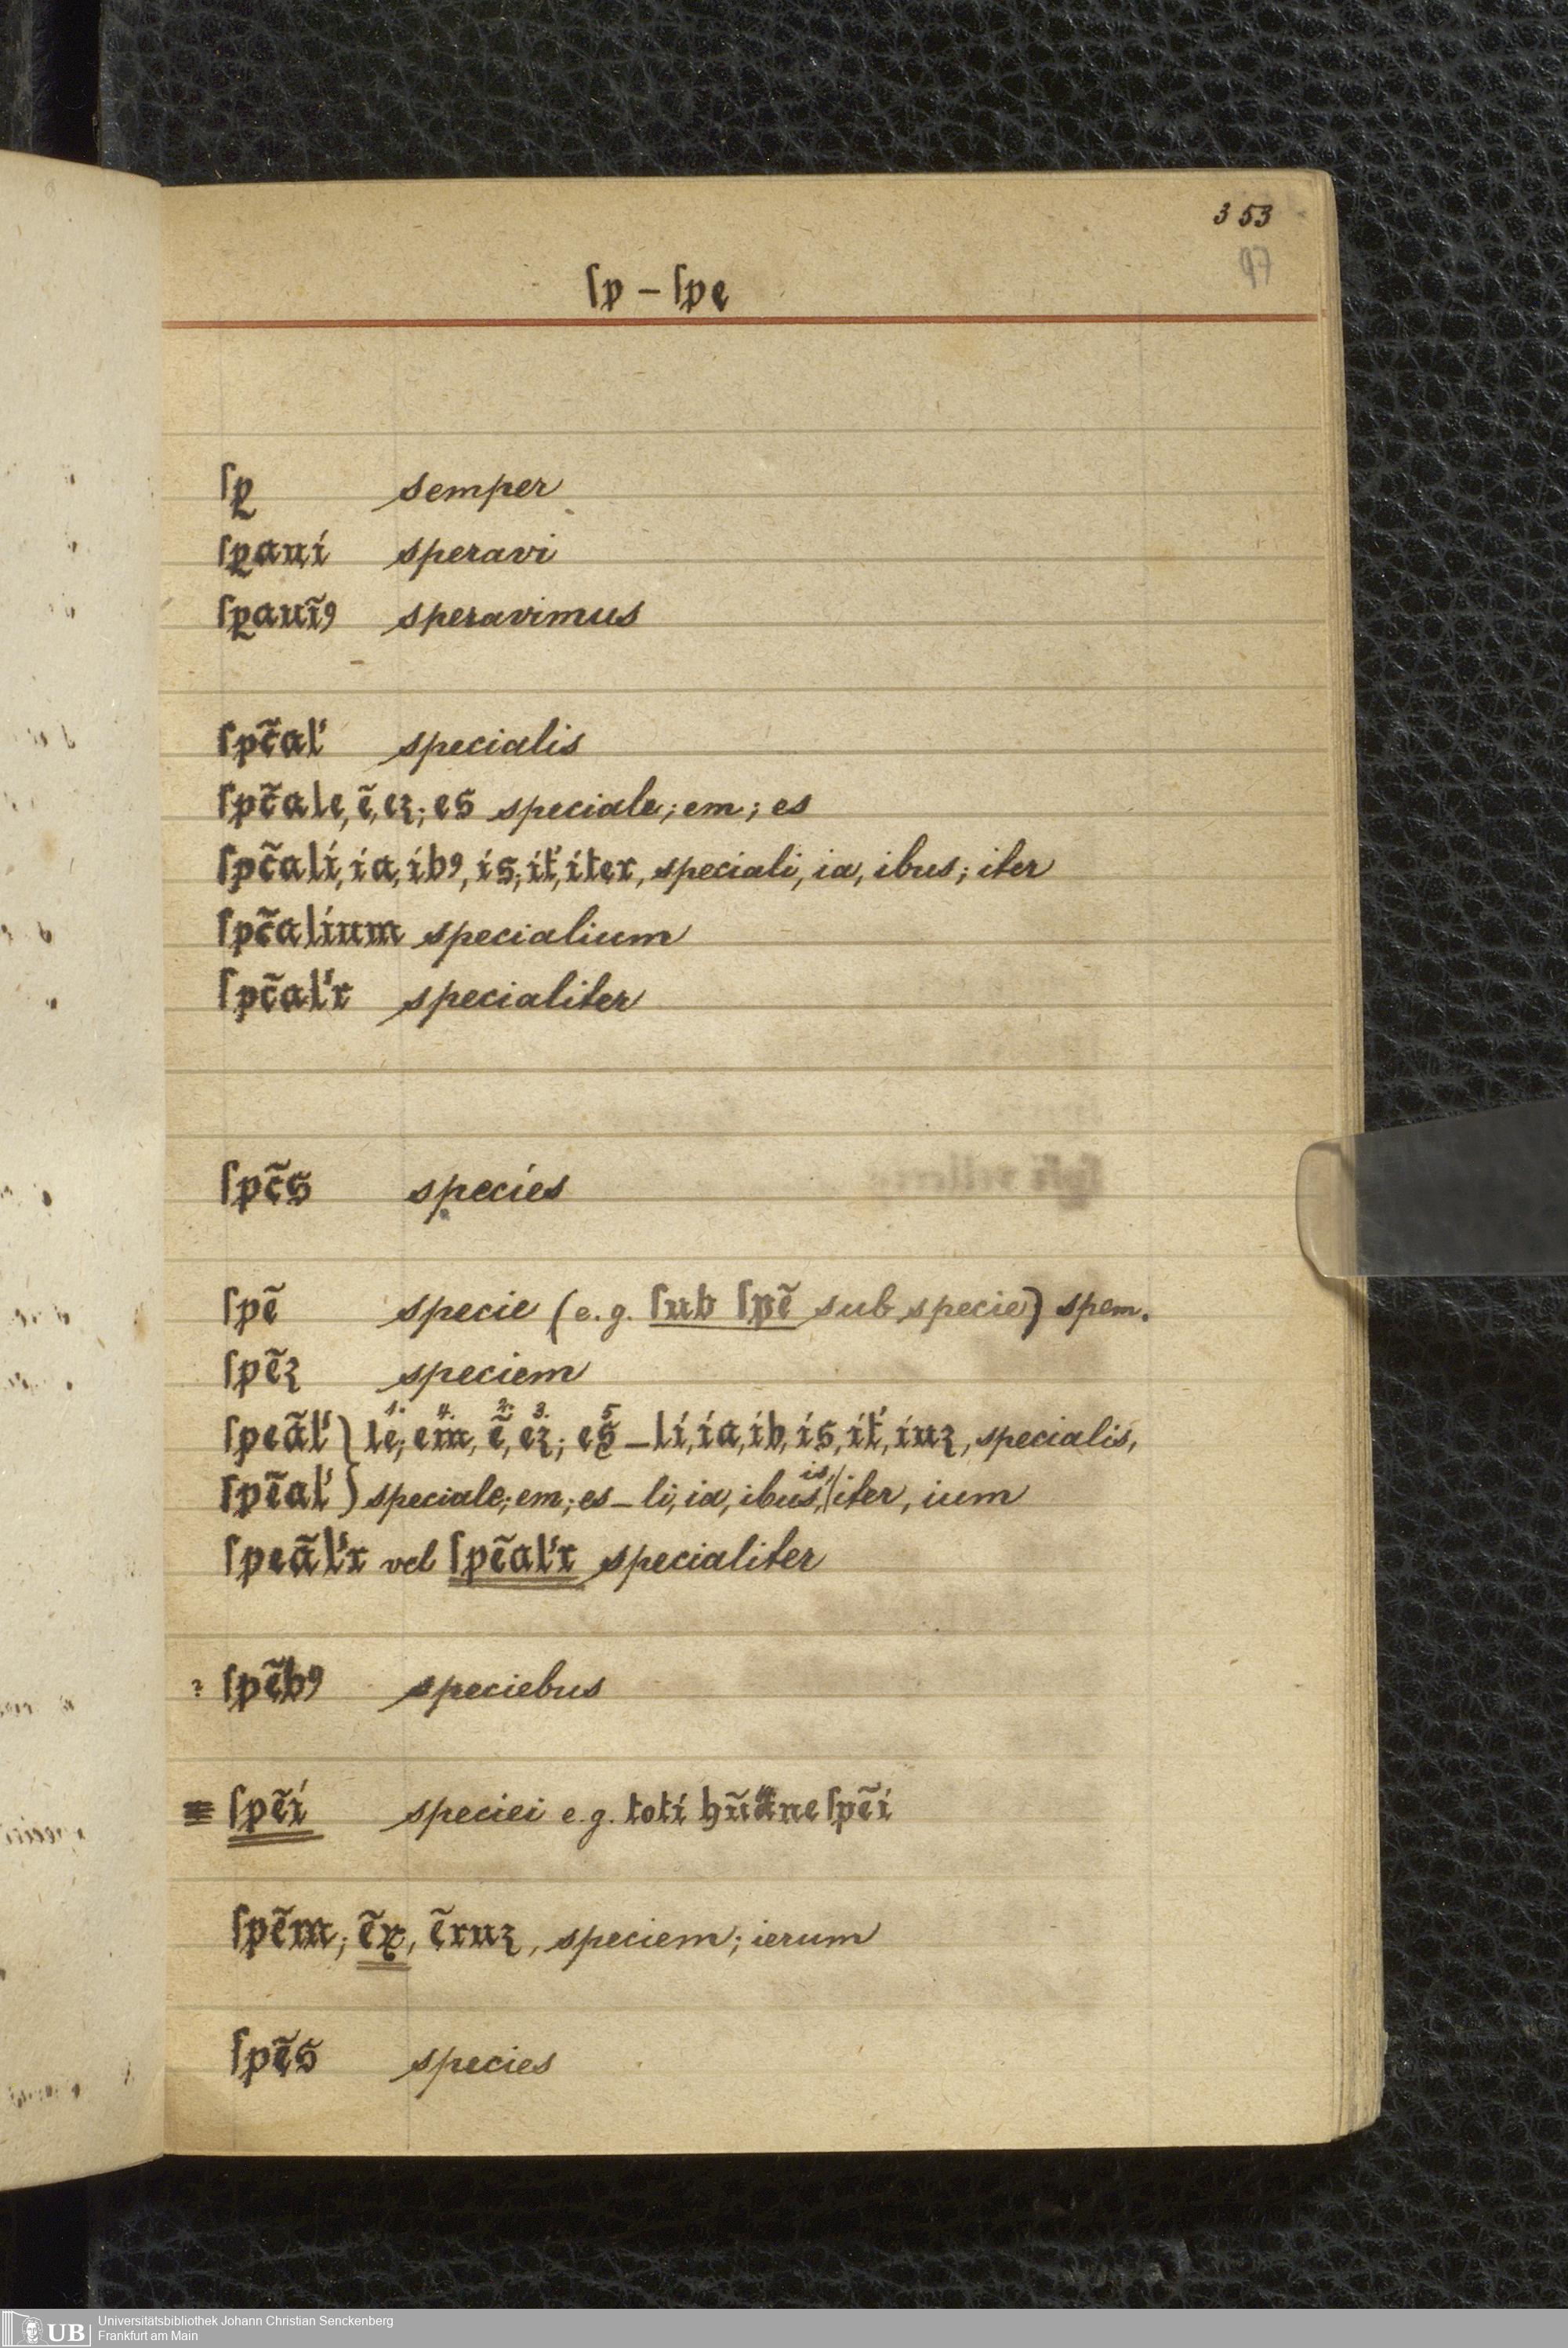 353
97
ſp – ſpe
ſꝑ semper
ſꝑaui speravi
ſꝑauĩꝯ speravimus
ſpc̃al' specialis
ſpc̃ale, ẽ, eꝫ; es speciale; em; es
ſpc̃ali, ia, ibꝯ, is, it', iter, speciali, ia, ibus; iter
ſpc̃alium specialium
ſpc̃al'r specialiter
ſpc̃s species
ſpẽ specie (e.g. ſub ſpẽ sub specie) spem.
ſpẽꝫ speciem
1. 4. 2. 3. 5
ſpeãl' ) le, em, ẽ, eꝫ; es – li, ia, ib, is, it', iuꝫ, specialis,
ſpẽal' ) speciale; em; es – li, ia, ibus, is, iter, ium
ſpeãl'r vel ſpẽal'r specialiter
? ſpẽbꝯ speciebus
ſpẽi speciei e.g. toti hũane ſpẽi
ſpẽm; ẽꝝ, ẽruꝫ, speciem; ierum
ſpẽs species
UB Universitätsbibliothek Johann Christian Senckenberg
Frankfurt am Main